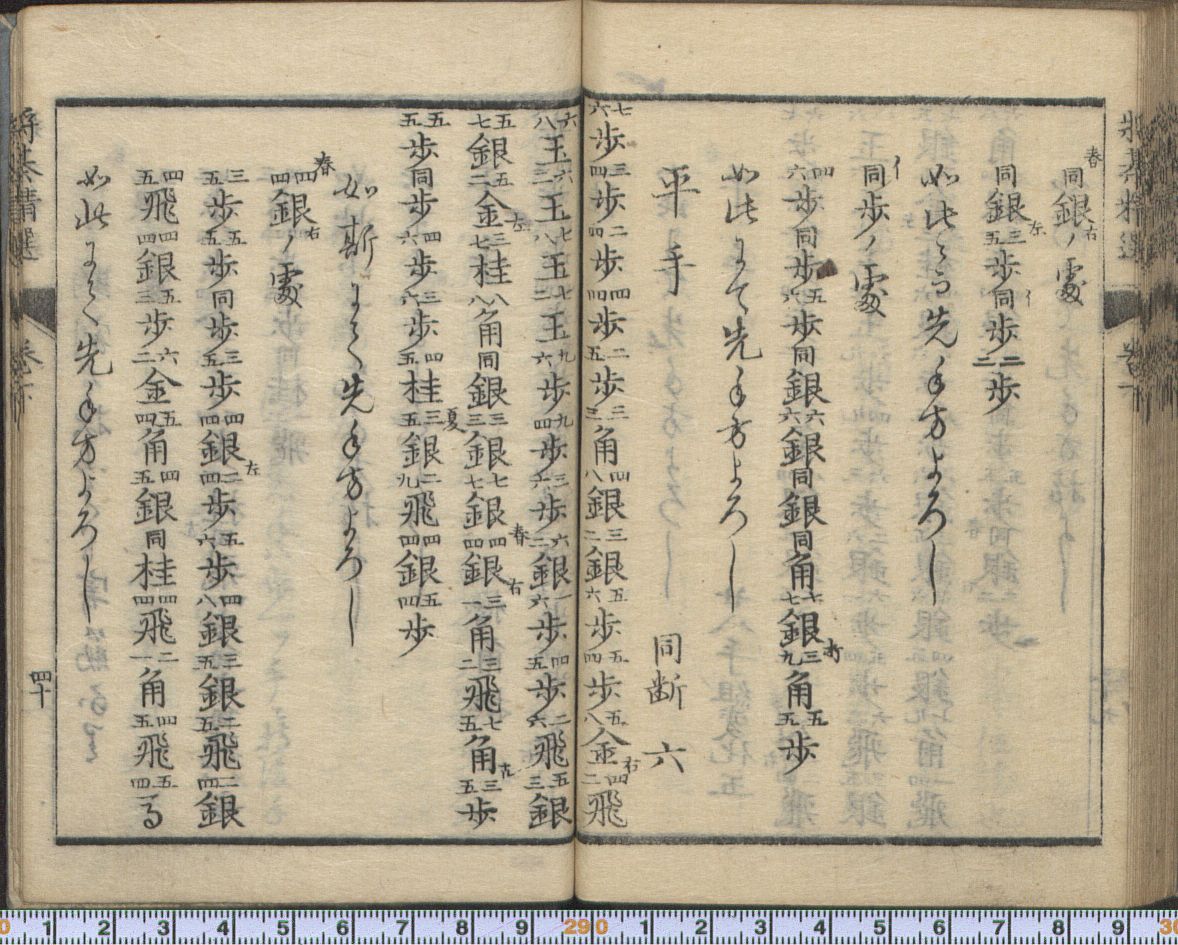 春 同銀右ノ處
同銀左 三五歩 同歩イ 二二歩
如此にて先手方よろし
イ 同歩ノ處
四六歩 同歩 五六歩 同銀 六六銀 同銀 同角 六七銀打 三九角 五五歩
如此にて先手方よろし
平手 同断 六
七六歩 三四歩 二四歩 四四歩 二五歩 三三角 四八銀 三二銀 五六歩 五四歩 五八金右 四二飛
六八玉 六二玉 七八玉 七二玉 九六歩 九四歩 三六歩 六二銀 一六歩 四五歩 二六飛 五三銀
五七銀 五二金左 三七桂 八八角 同銀 三三銀 七七銀 四四銀右春 三一角 三二飛 七五角左 三五歩
五五歩 同歩 四六歩 三六歩 四五桂 三五銀夏 二九飛 四四銀 五四歩
如斯にて先手方よろし
春 四四銀右ノ處
三五歩 五五歩 同歩 三五歩 四四銀左 二四歩 五六歩 四八銀 三五銀 二五飛 二四銀
四五飛 四四銀 五三歩 六二金 五四角 四五銀 同桂 四四飛 二一角 四五飛 五四る
如此にて先手方よろし
将棋精選 巻下
将棋精選 巻下 四十
0 1 2 3 4 5 6 7 8 9 29 0 1 2 3 4 5 6 7 8 9 30